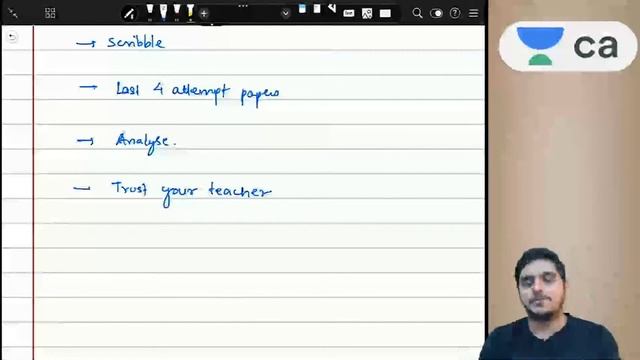 → Scribble
→ Last 4 attempt papers
→ Analyse.
→ Trust your teacher
ca